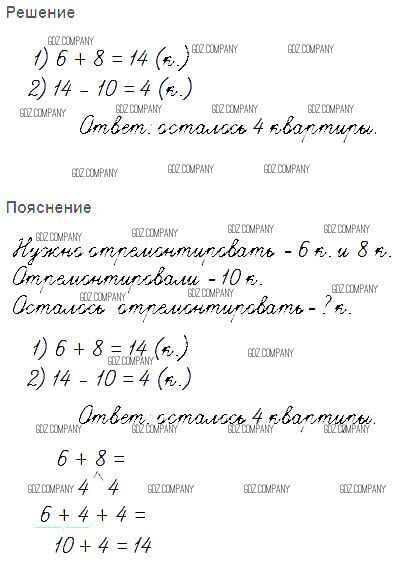 Решение
GDZ.COMPANY
1) 6 + 8 = 14 (к.) GDZ.COMPANY GDZ.COMPANY
2) 14 - 10 = 4 (к.)
GDZ.COMPANY GDZ.COMPANY GDZ.COMPANY GDZ.COMPANY
Ответ: осталось 4 квартиры.
GDZ.COMPANY GDZ.COMPANY GDZ.COMPANY
Пояснение
GDZ.COMPANY GDZ.COMPANY GDZ.COMPANY GDZ.COMPANY
Нужно отремонтировать - 6 к. и 8 к.
Отремонтировали - 10 к.
GDZ.COMPANY GDZ.COMPANY GDZ.COMPANY
Осталось отремонтировать - ? к.
1) 6 + 8 = 14 (к.)
GDZ.COMPANY GDZ.COMPANY
2) 14 - 10 = 4 (к.)
Ответ: осталось 4 квартиры.
GDZ.COMPANY GDZ.COMPANY GDZ.COMPANY GDZ.COMPANY
6 + 8 =
GDZ.COMPANY 4 4 GDZ.COMPANY GDZ.COMPANY GDZ.COMPANY
6 + 4 + 4 =
10 + 4 = 14